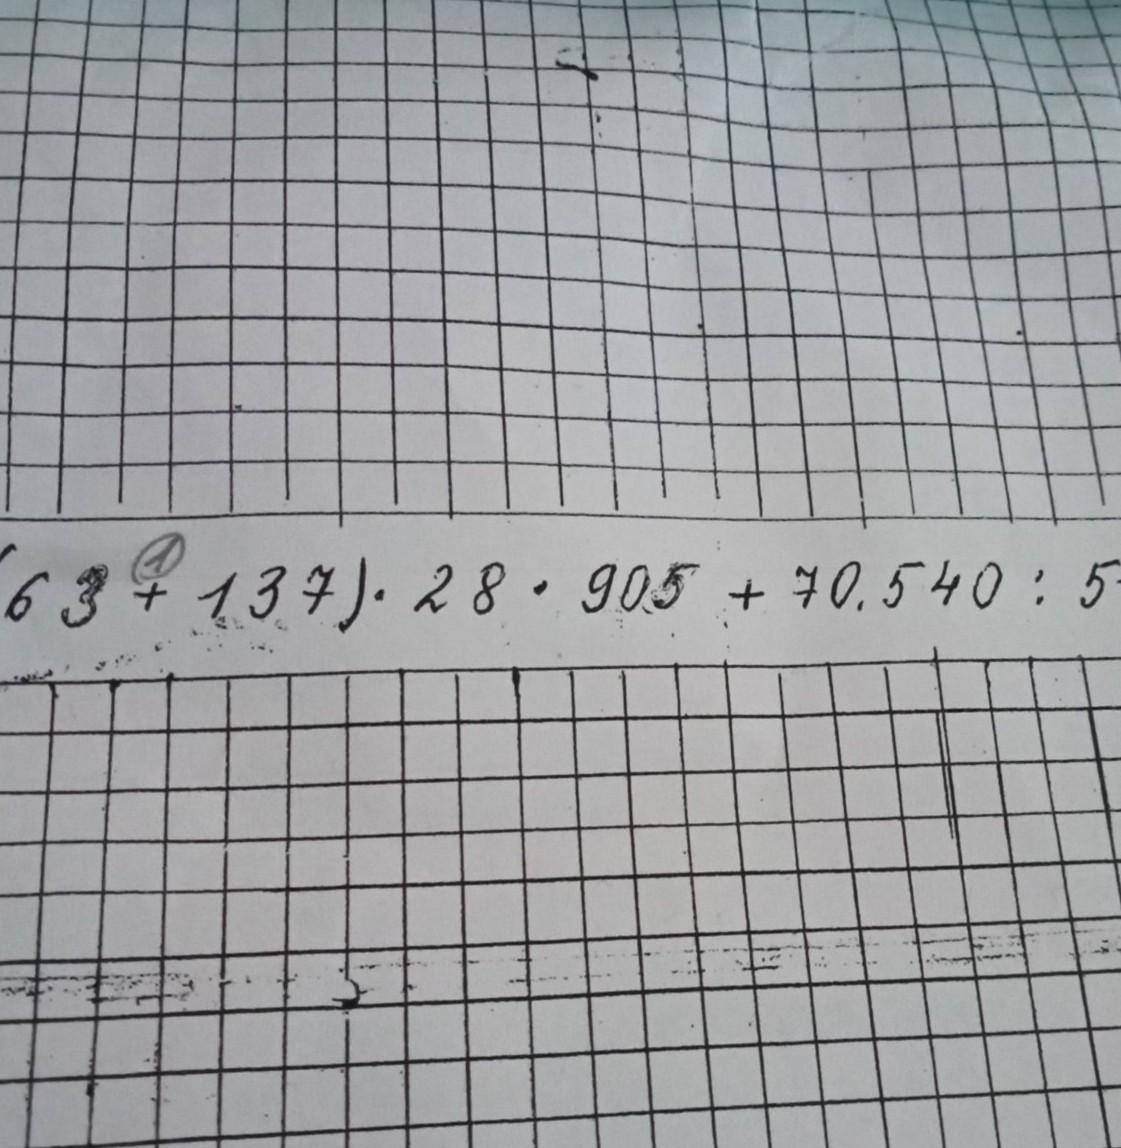 (63 + 137) · 28 · 905 + 70.540 : 5
①